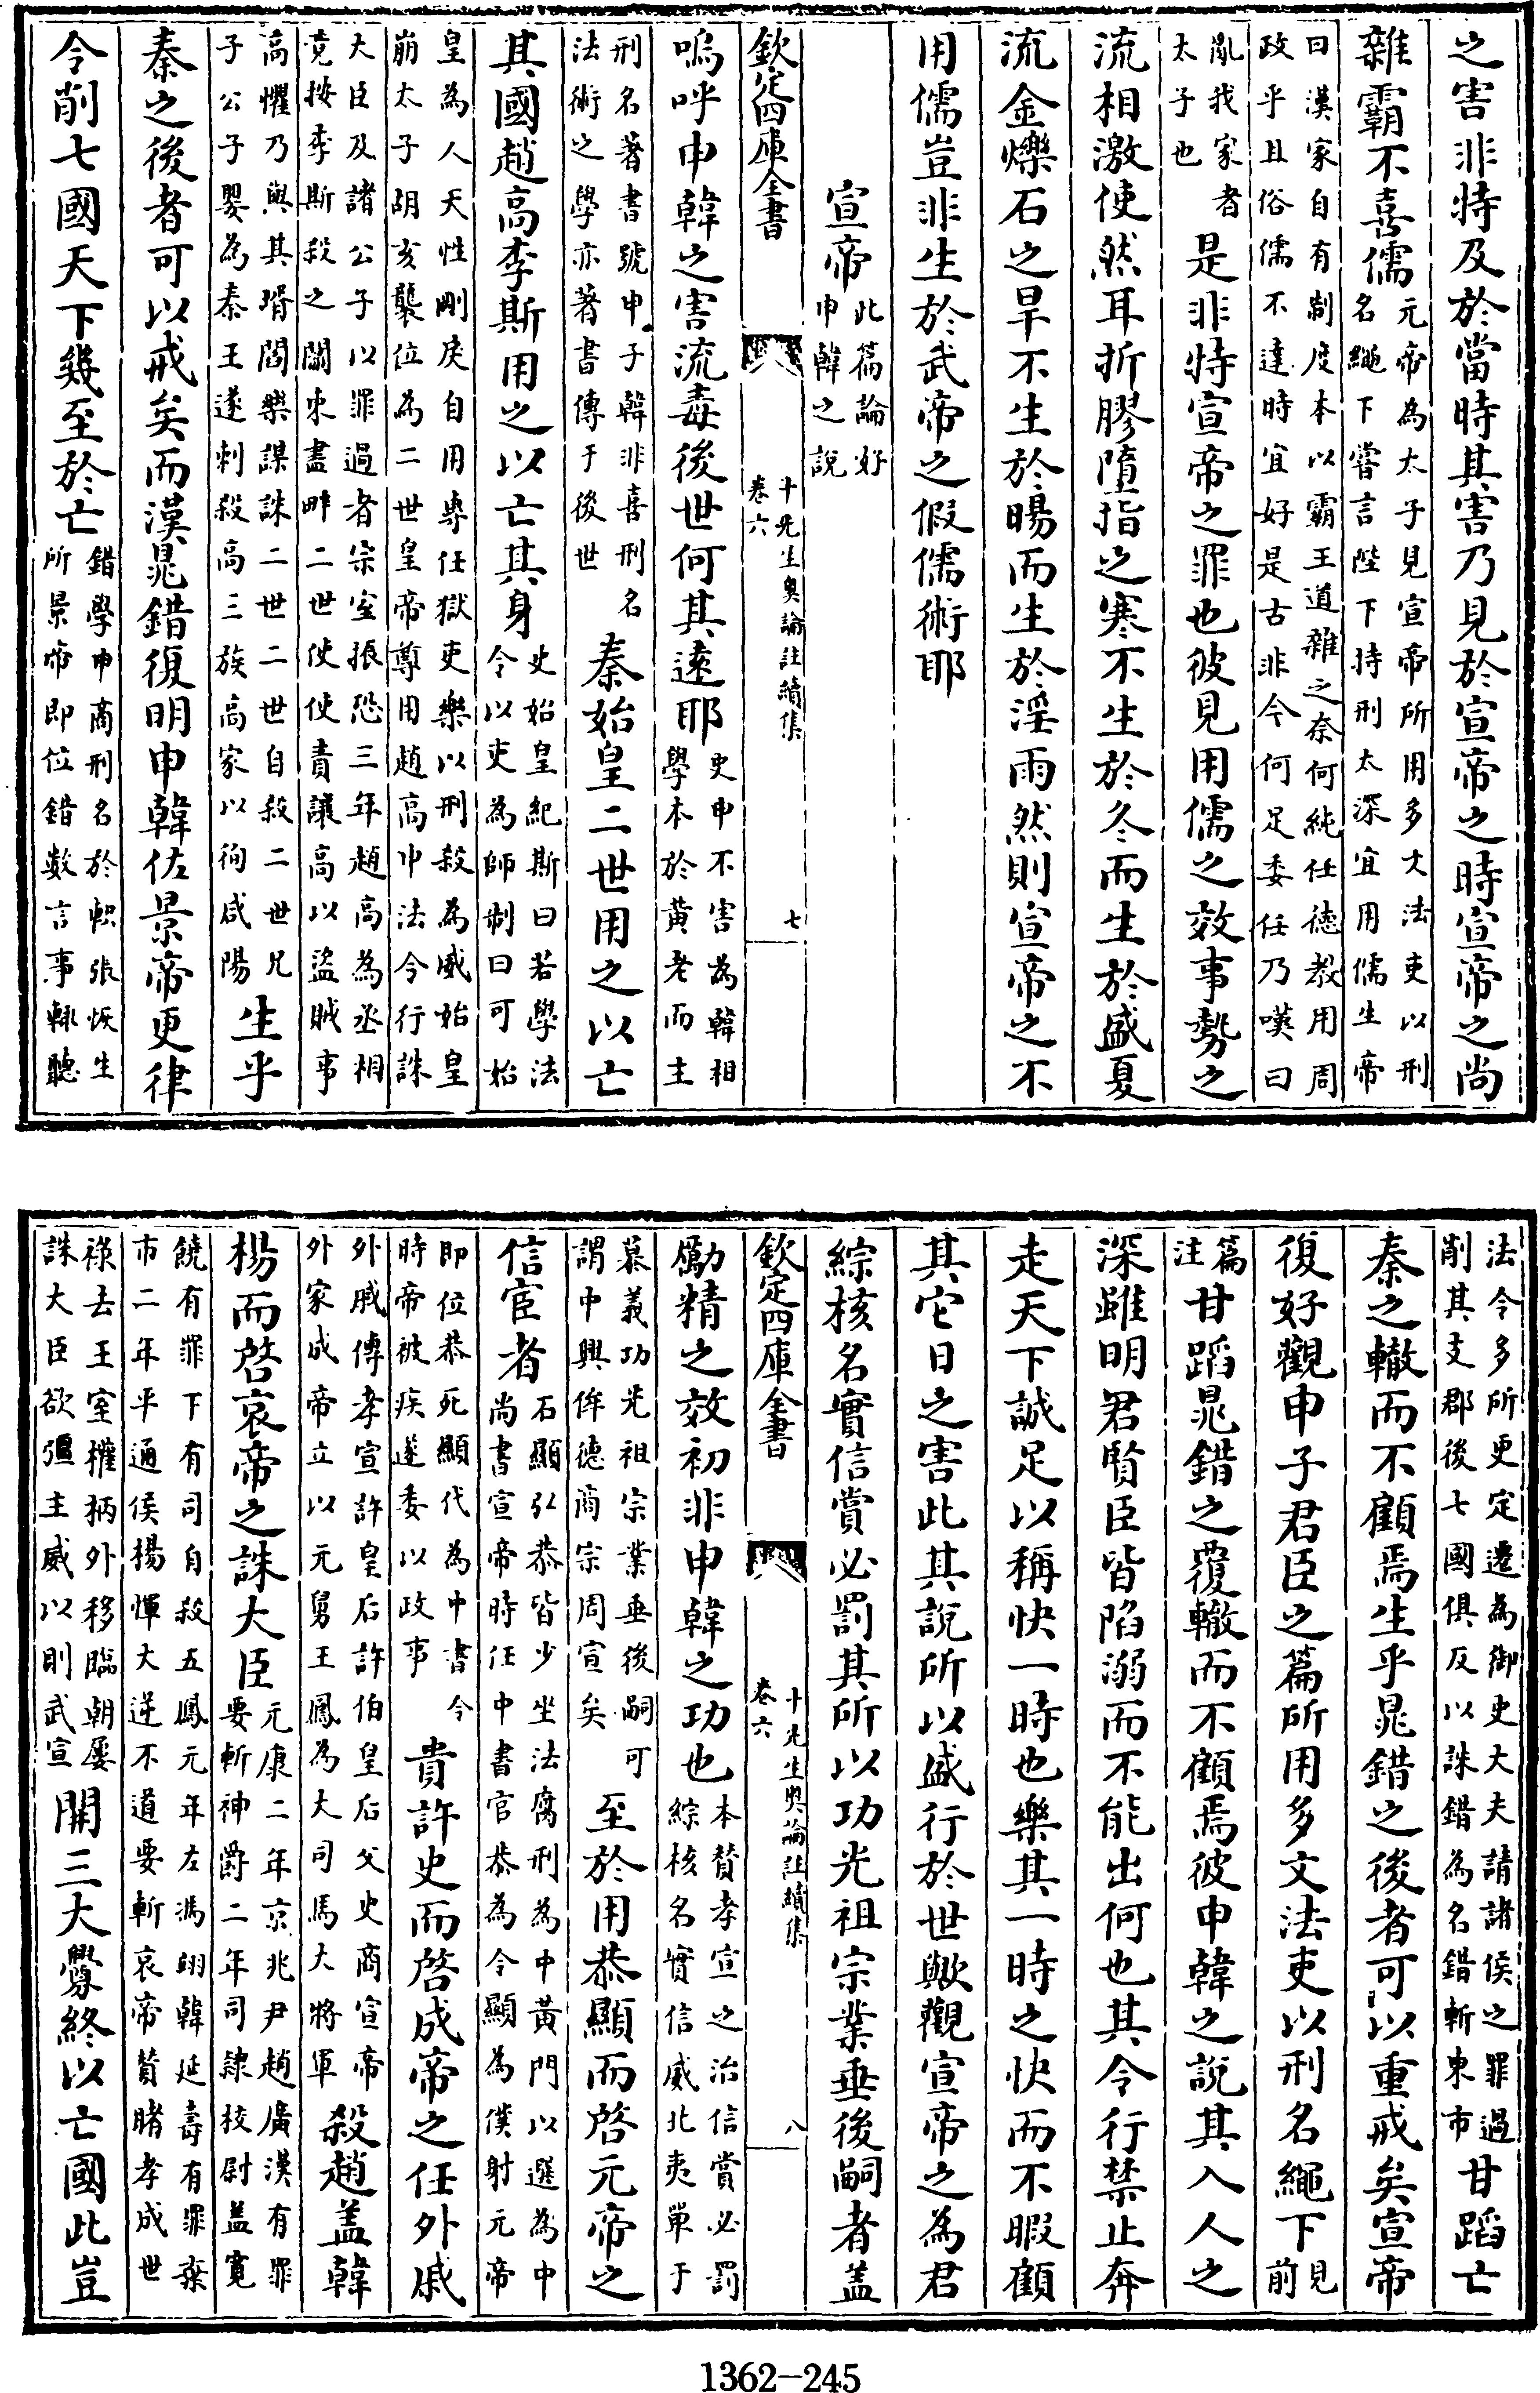 之害非特及於當時其害乃見於宣帝之時宣帝之尚
雜霸不喜儒元帝為太子見宣帝所用多文法吏以刑名繩下嘗言陛下持刑太深宜用儒生帝
曰漢家自有制度本以霸王道雜之奈何純任德教用周政乎且俗儒不達時宜好是古非今何足委任乃嘆曰
亂我家者太子也是非特宣帝之罪也彼見用儒之效事勢之
流相激使然耳折膠墮指之寒不生於冬而生於盛夏
流金爍石之旱不生於暘而生於淫雨然則宣帝之不
用儒豈非生於武帝之假儒術耶
宣帝此篇論好申韓之說
欽定四庫全書 十先生奧論註續集 卷六 七
嗚呼申韓之害流毒後世何其遠耶史申不害為韓相學本於黃老而主
刑名著書號申子韓非喜刑名法術之學亦著書傳于後世秦始皇二世用之以亡
其國趙高李斯用之以亡其身史始皇紀斯曰若學法令以吏為師制曰可始
皇為人天性剛戾自用專任獄吏樂以刑殺為威始皇崩太子胡亥襲位為二世皇帝尊用趙高申法令行誅
大臣及諸公子以罪過者宗室振恐三年趙高為丞相竟按李斯殺之關東盡畔二世使使責讓高以盜賊事
高懼乃與其壻閻樂謀誅二世二世自殺二世兄子公子嬰為秦王遂刺殺高三族高家以徇咸陽生乎
秦之後者可以戒矣而漢晁錯復明申韓佐景帝更律
令削七國天下幾至於亡錯學申商刑名於軹張恢生所景帝即位錯數言事輙聽
法令多所更定遷為御史大夫請諸侯之罪過削其支郡後七國俱反以誅錯為名錯斬東市甘蹈亡
秦之轍而不顧焉生乎晁錯之後者可以重戒矣宣帝
復好觀申子君臣之篇所用多文法吏以刑名繩下見前
篇注甘蹈晁錯之覆轍而不顧焉彼申韓之說其入人之
深雖明君賢臣皆陷溺而不能出何也其令行禁止奔
走天下誠足以稱快一時也樂其一時之快而不暇顧
其它日之害此其說所以盛行於世歟觀宣帝之為君
綜核名實信賞必罰其所以功光祖宗業垂後嗣者盖
欽定四庫全書 十先生奧論註續集 卷六 八
勵精之效初非申韓之功也本贊孝宣之治信賞必罰綜核名實信威北夷單于
慕義功光祖宗業垂後嗣可謂中興侔德商宗周宣矣至於用恭顯而啓元帝之
信宦者石顯弘恭皆少坐法腐刑為中黃門以選為中尚書宣帝時任中書官恭為令顯為僕射元帝
即位恭死顯代為中書令時帝被疾遂委以政事貴許史而啓成帝之任外戚
外戚傳孝宣許皇后許伯皇后父史商宣帝外家成帝立以元舅王鳳為大司馬大將軍殺趙盖韓
楊而啓哀帝之誅大臣元康二年京兆尹趙廣漢有罪要斬神爵二年司隸校尉盖寬
饒有罪下有司自殺五鳳元年左馮翊韓延壽有罪棄市二年平通侯楊惲大逆不道要斬哀帝贊睹孝成世
祿去王室權柄外移臨朝屢誅大臣欲彊主威以則武宣開三大釁終以亡國此豈
1362-245